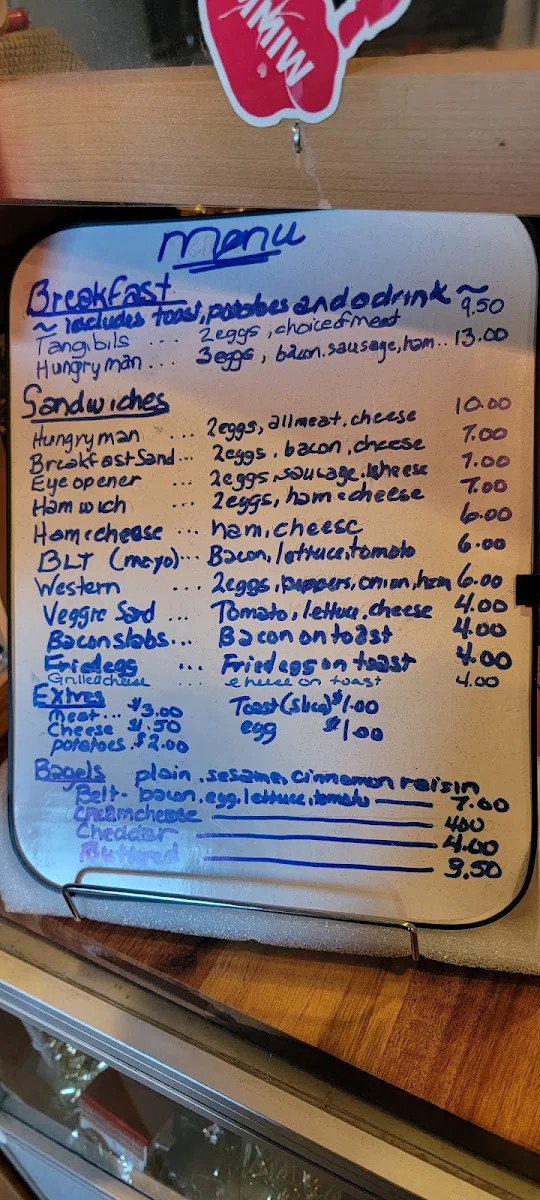 MMIW
Menu
Breakfast
~ includes toast, potatoes and a drink ~
Tangibils ... 2eggs, choice of meat 9.50
Hungryman ... 3eggs, bacon, sausage, ham.. 13.00
Sandwiches
Hungryman ... 2eggs, all meat, cheese 10.00
Breakfast Sand... 2eggs, bacon, cheese 7.00
Eye opener ... 2eggs, sausage, cheese 7.00
Ham wich ... 2eggs, ham & cheese 7.00
Ham & cheese ... ham, cheese 6.00
BLT (mayo)... Bacon, lettuce, tomato 6.00
Western ... 2eggs, peppers, onion, ham 6.00
Veggie Sand ... Tomato, lettuce, cheese 4.00
Bacon slabs... Bacon on toast 4.00
Fried egs ... Fried egg on toast 4.00
Grilled cheese ... cheese on toast 4.00
Extres
Meat... $3.00 Toast (slice) $1.00
Cheese $1.50 egg $1.00
Potatoes. $2.00
Bagels plain, sesame, cinnamon raisin
Belt- bacon, egg, lettuce, tomato 7.00
Creamcheese 400
Cheddar 4.00
Buttered 3.50